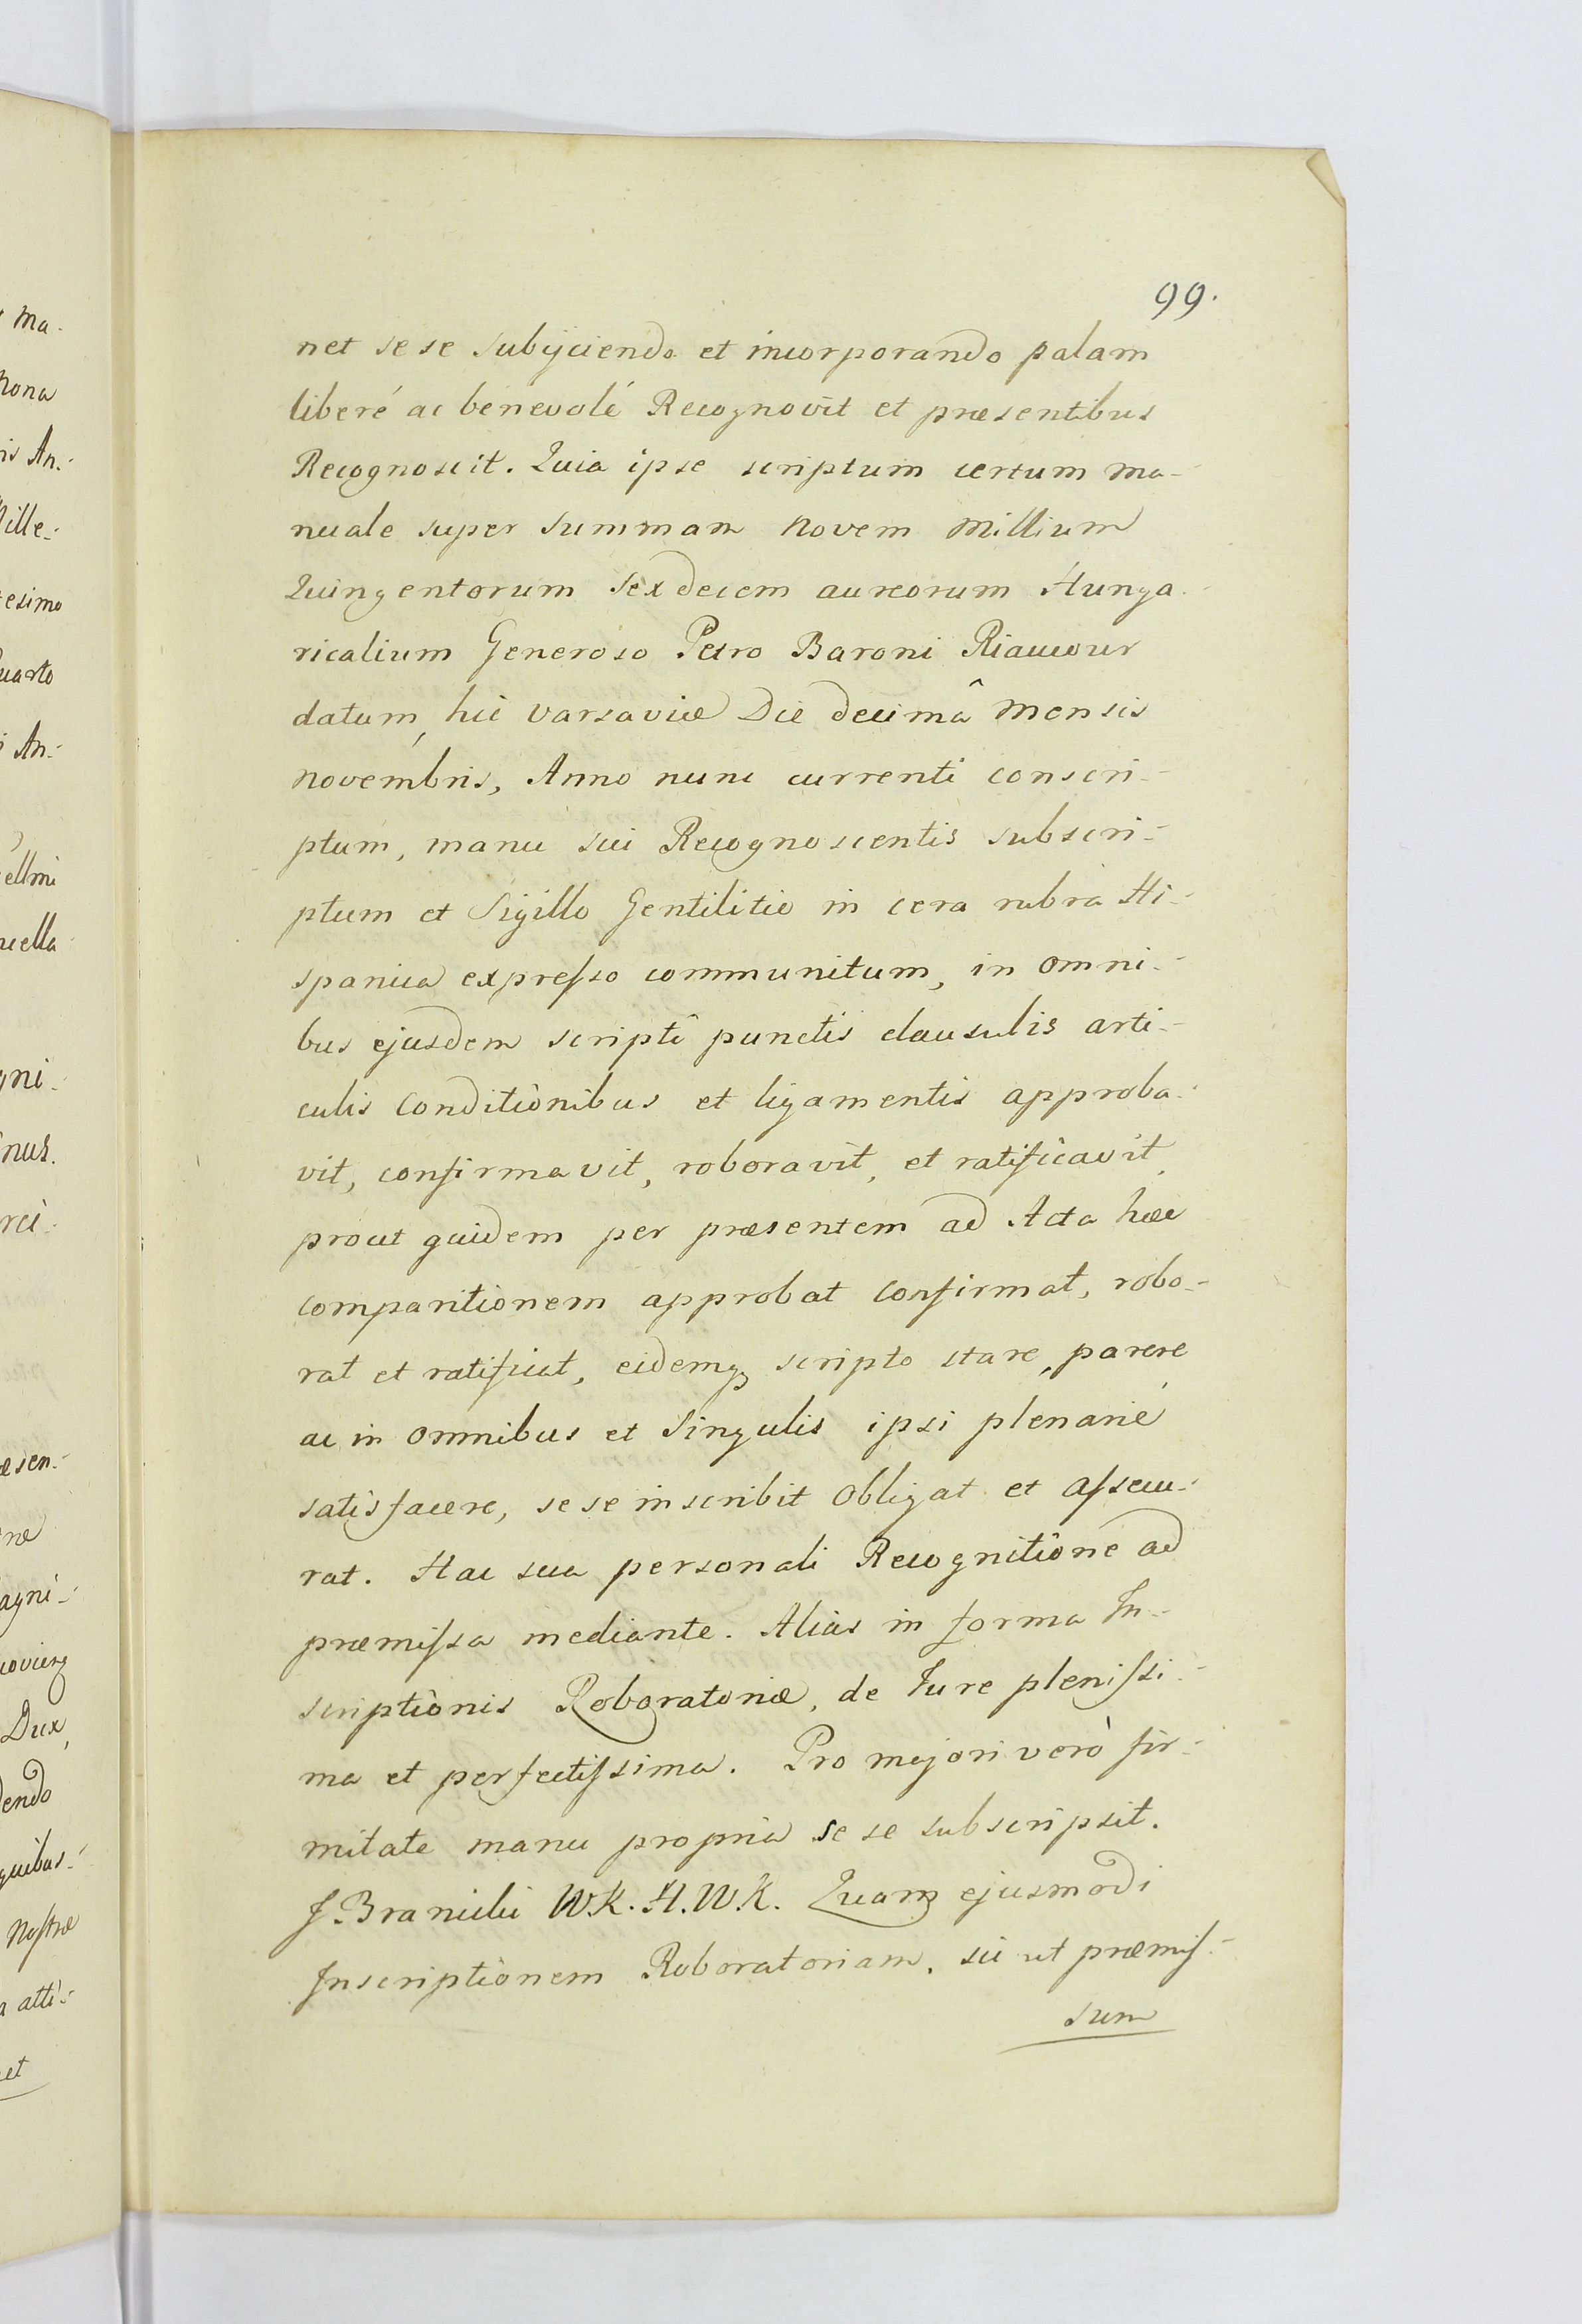 99.
net sese subijciendo et incorporando palam
liberé ac benevolé Recognovit et præsentibus
Recognoscit. Quia ipse scriptum certum ma-
nuale super summam Novem Millium
Quingentorum Sexdecem aureorum Hunga-
ricalium Generoso Petro Baroni Riaucour
datum, hic Varsaviæ Die decimâ Mensis
Novembris, Anno nunc currenti conscri-
ptum, manu sui Recognoscentis subscri-
ptum et Sigillo Gentilitio in cera rubra Hi-
spanica expresso communitum, in omni-
bus ejusdem scripti punctis clausulis arti-
culis Conditionibus et ligamentis approba-
vit, confirmavit, roboravit, et ratificavit,
prout quidem per præsentem ad Acta hæc
comparitionem approbat Confirmat, robo-
rat et ratificat, eidemq scripto stare, parere
ac in omnibus et Singulis ipsi plenarié
satisfacere, sese inscribit Obligat et assecu-
rat. Hac sua personali Recognitione ad
præmissa mediante. Alias in forma In-
scriptionis Roboratoriæ, de Iure plenissi-
ma et perfectissima. Pro majori verò fir-
mitate manu propria sese subscripsit.
J. Branicki W.K.H.W.K. Quam ejusmodi
Inscriptionem Roboratoriam, sic ut præmis-
sum
Ma-
Nona
An.-
Mille-
esimo
uarto
An-
ellmi
uella
gni-
nus.
rci-
æsen-
ne
agni-
Dux,
dendo
quibus-
Nostræ
a atti-
et